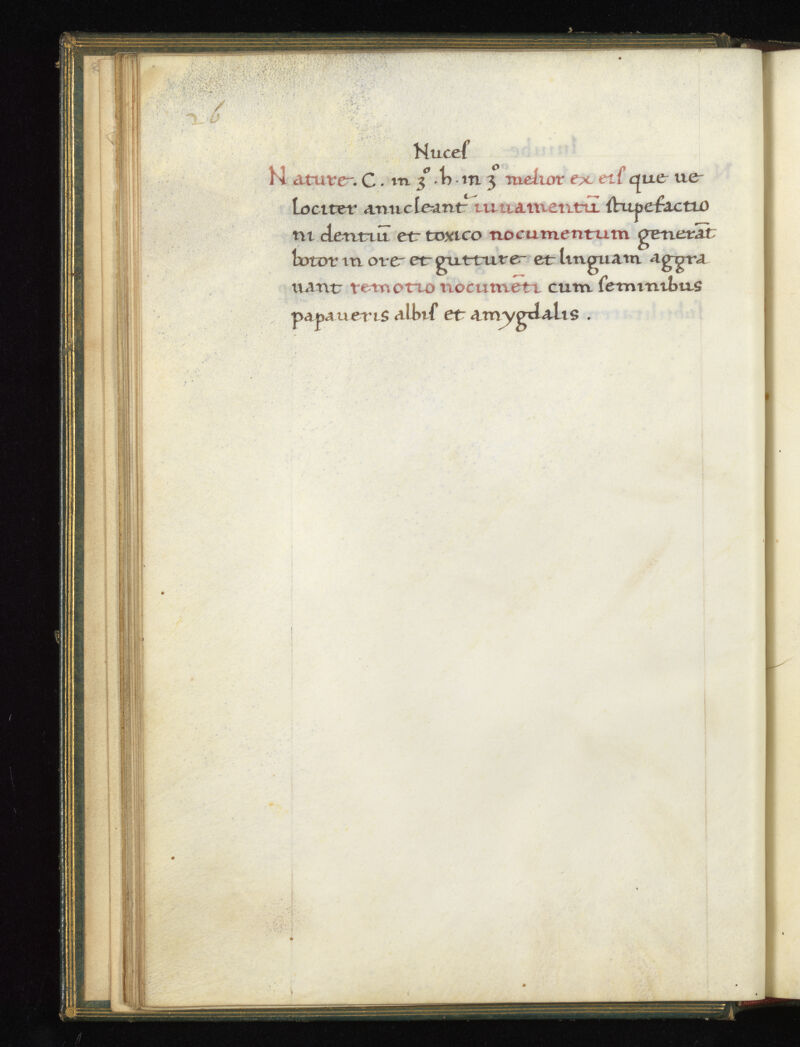 26
Nuceſ
Nature. C. in 3º. h. in 3º melior ex eiſ que ue
lociter anucleant iuuamentū ſtupefactio
ni dentiū et toxico nocumentum generāt
botor in ore et gutture et linguam aggra
uant remotio nocumēti cum ſeminibus
papaueris albiſ et amygdalis .